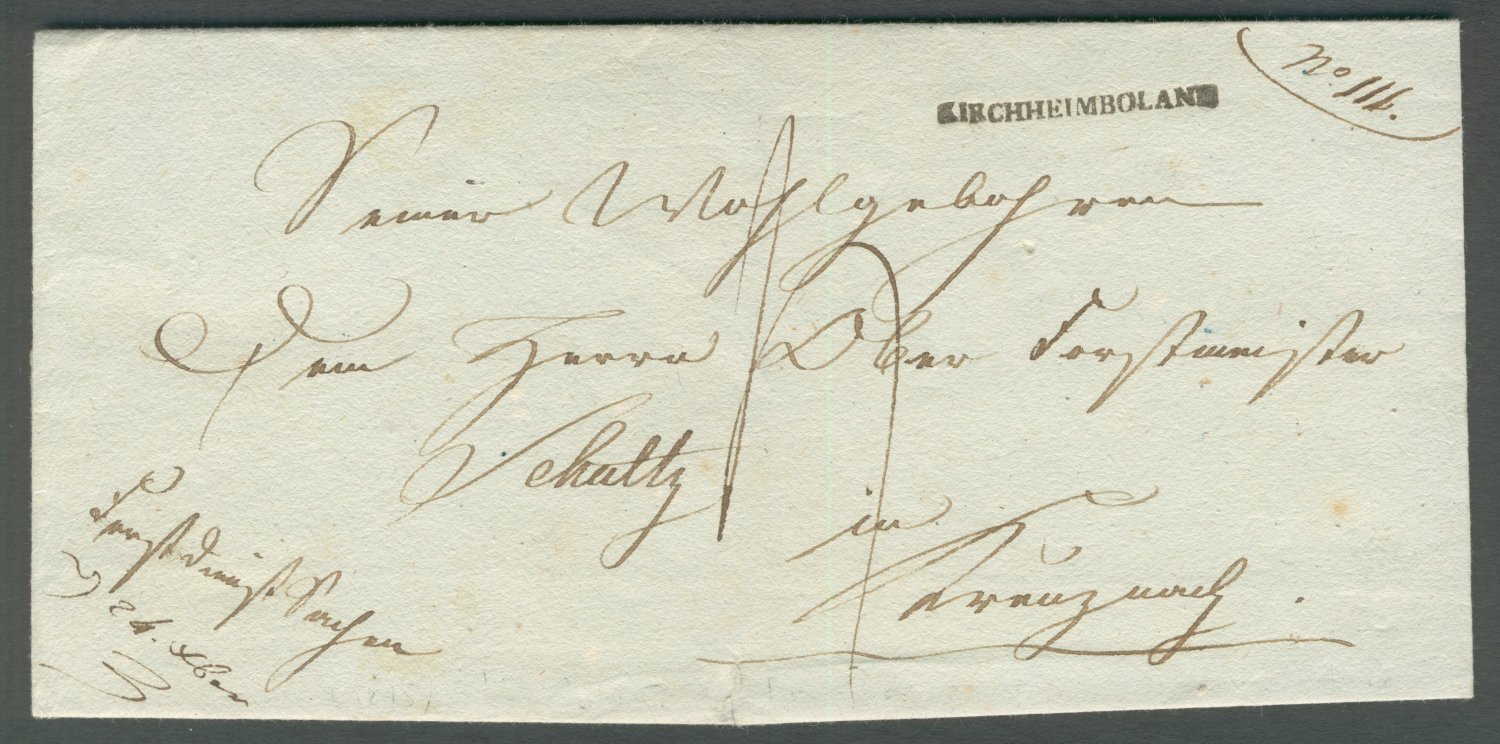 No. 111.
KIRCHHEIMBOLAND
Seiner Wohlgebohren
Dem Herrn Ober Forstmeister
Schultz
in
Kreuznach.
Forstdienst Sachen
24. Xber